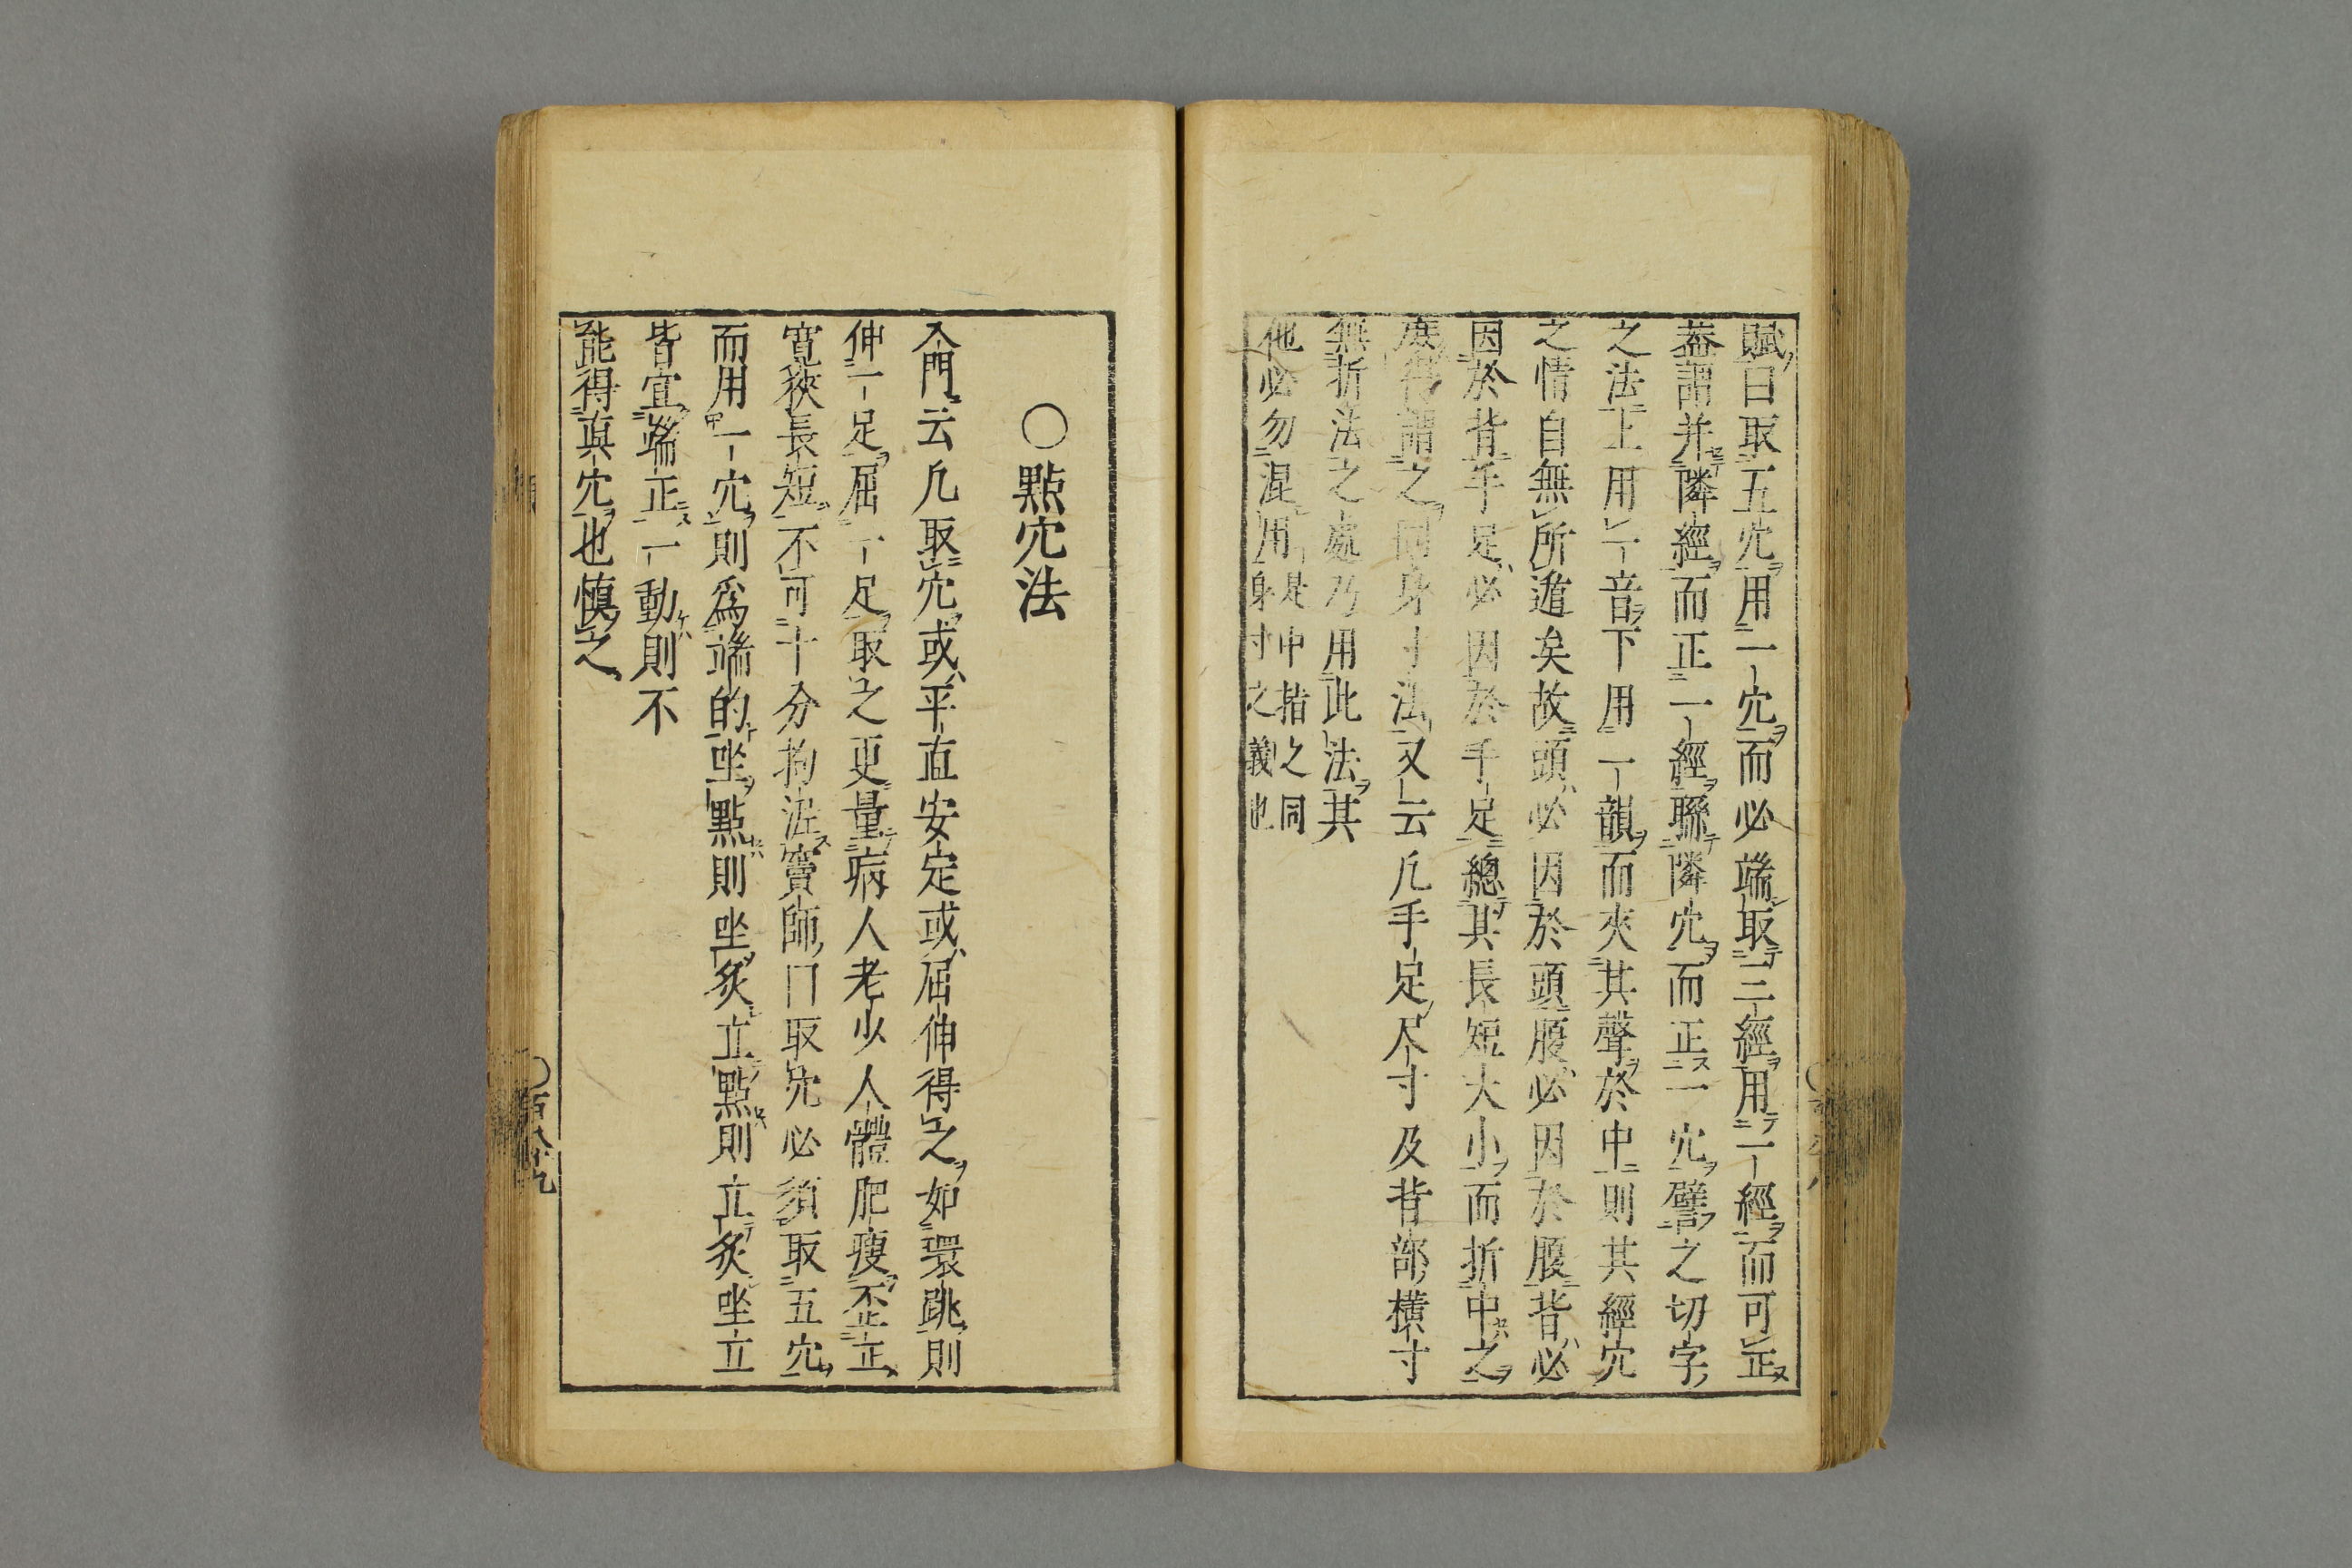 賦曰取五穴用一穴而必端取三經用一經而可正
蓋謂并隣經而正一經聯隣穴而正一穴譬之切字
之法上用一音下用一韻而夾其聲於中則其經穴
之情自無所遁矣故頭必因於頭腹必因於腹背必
因於背手足必因於手足總其長短大小而折中之
謂之同身寸法又云凡手足尺寸及背部橫寸
無折法之處乃用此法其
他必勿混用是中指之同
身寸之義也
〇點穴法
入門云凡取穴或平直安定或屈伸得之如環跳則
伸一足屈一足取之更量病人老少人體肥瘦歪正
寬狹長短不可十分拘泥竇師曰取穴必須取五穴
而用一穴則爲端的坐點則坐炙立點則立炙坐立
皆宜端正一動則不
能得真穴也慎之
〇百八十九